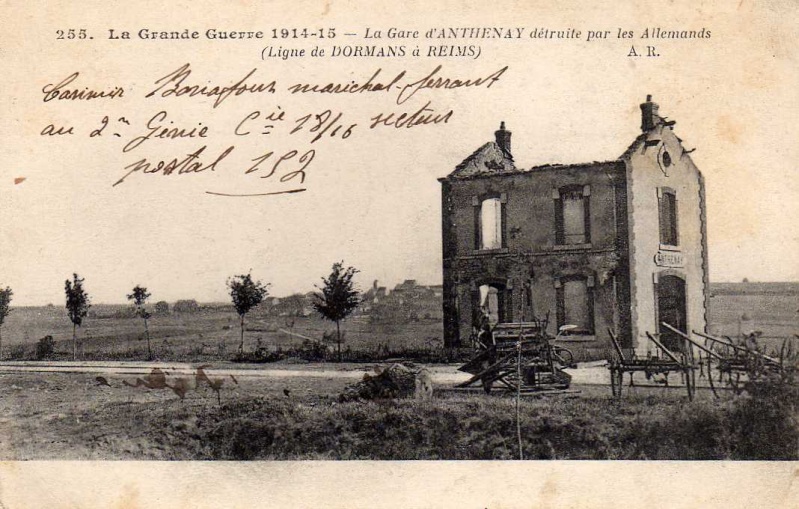 255. La Grande Guerre 1914-15 — La Gare d'ANTHENAY détruite par les Allemands
(Ligne de DORMANS à REIMS) A. R.
Casimir maréchal-ferrant
au 2m Génie Cie 18/16 secteur
postal 152
ANTHENAY